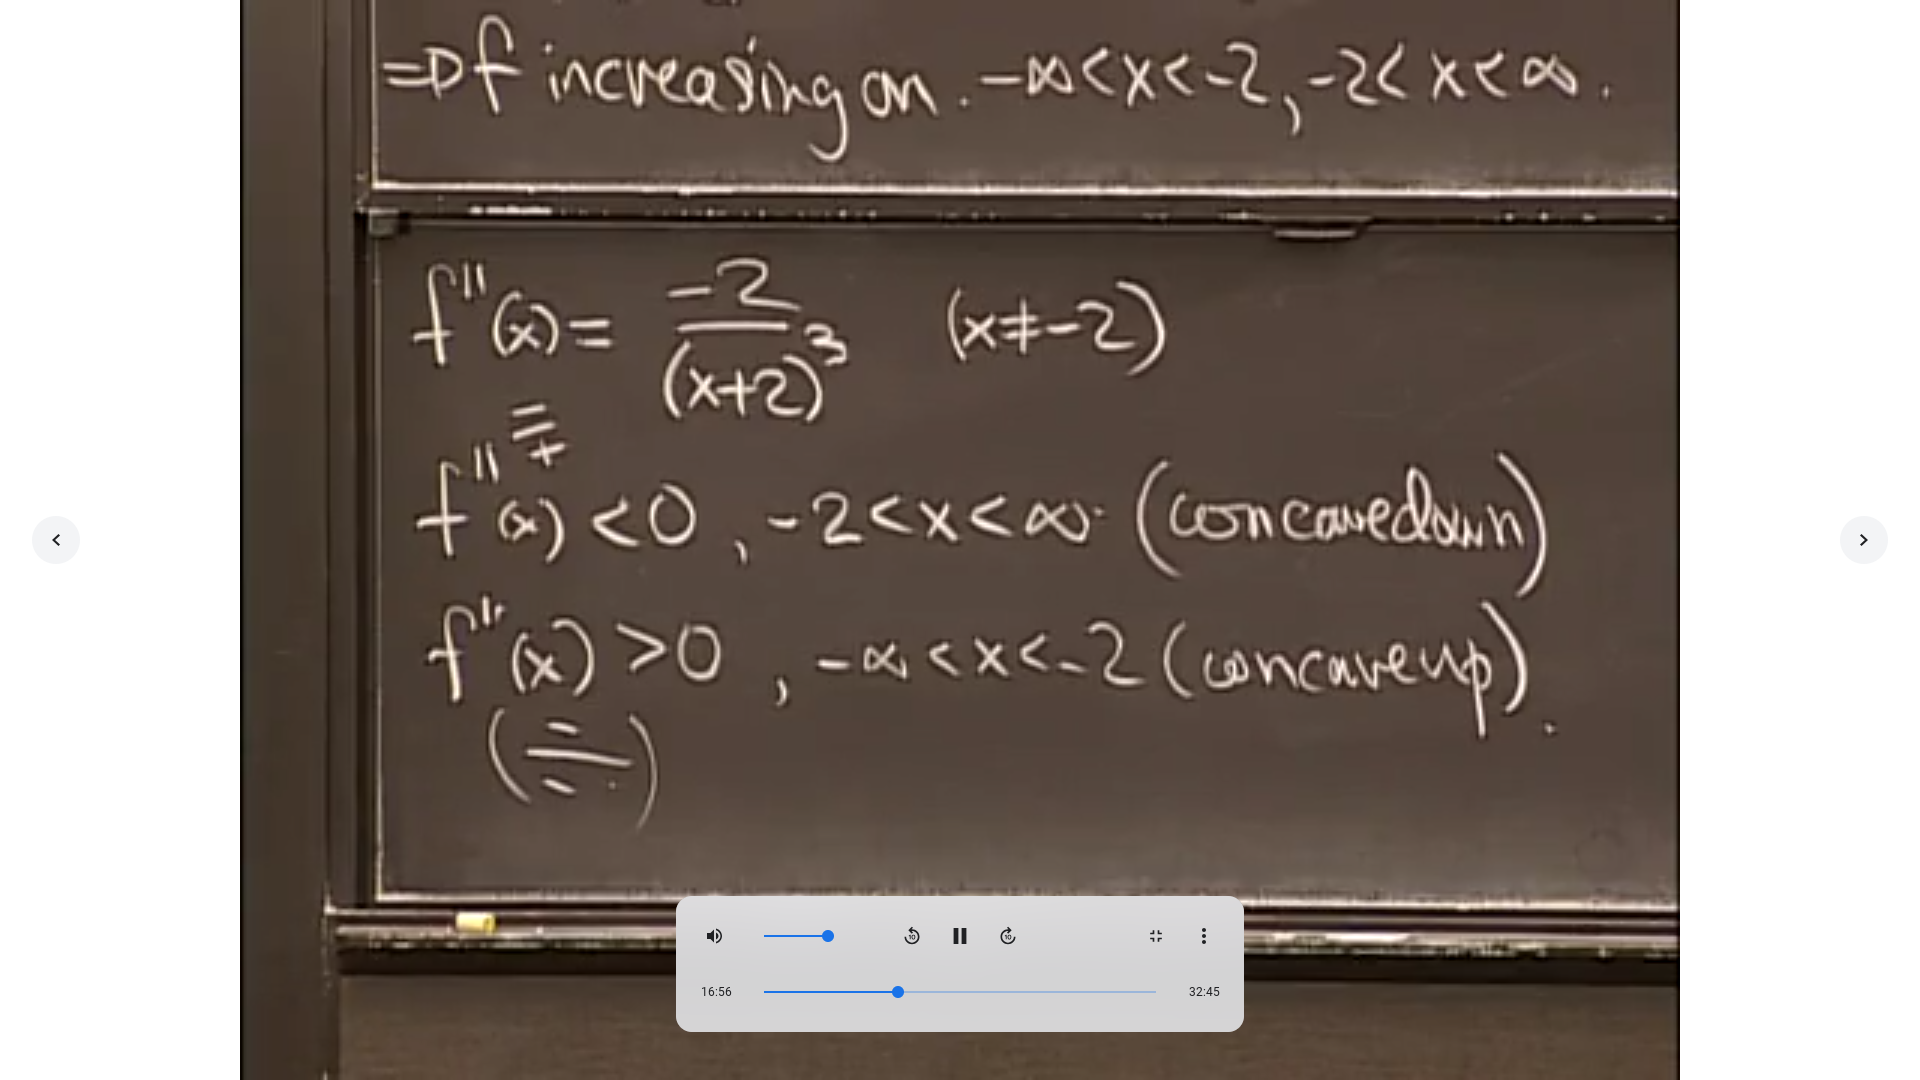 => f increasing on. -∞<x<-2, -2<x<∞.
f''(x) = -2/(x+2)^3 (x≠-2)
-/+
f''(x) <0, -2<x<∞ (concave down)
f''(x) >0, -∞<x<-2 (concave up).
(-/-)
16:56 32:45